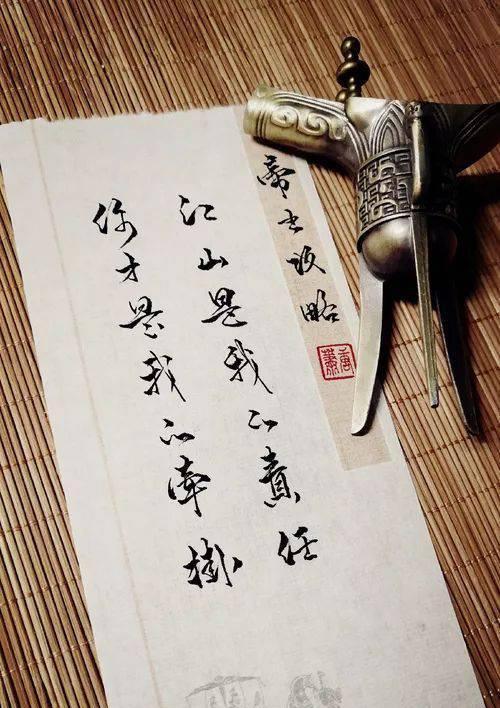 帝王攻略
江山是我的責任
你才是我的牽掛